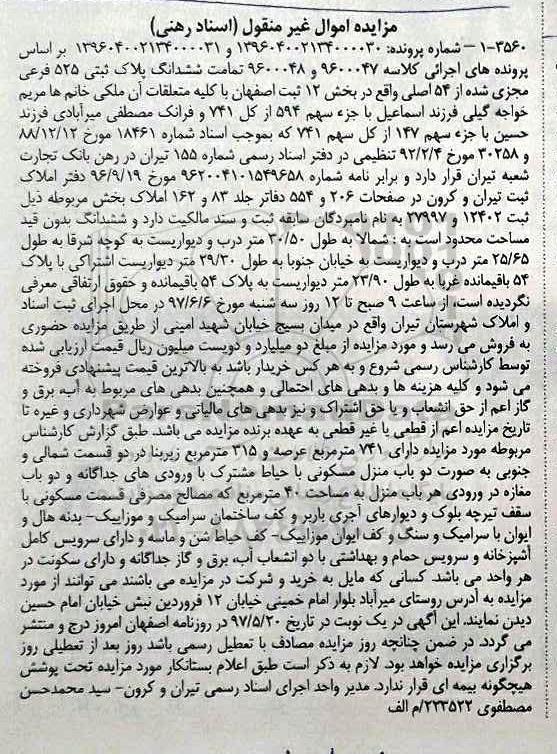 مزایده اموال غیر منقول (اسناد رهنی)
۱-۳۵۶۰ – شماره پرونده: ۱۳۹۶۰۴۰۰۲۱۳۴۰۰۰۰۳۰ و ۱۳۹۶۰۴۰۰۲۱۳۴۰۰۰۰۳۱ بر اساس
پرونده های اجرائی کلاسه ۹۶۰۰۰۴۷ و ۹۶۰۰۰۴۸ تمامت ششدانگ پلاک ثبتی ۵۲۵ فرعی
مجزی شده از ۵۴ اصلی واقع در بخش ۱۲ ثبت اصفهان با کلیه متعلقات آن ملکی خانم ها مریم
خواجه گیلی فرزند اسماعیل با جزء سهم ۵۹۴ از کل ۷۴۱ و فرانک مصطفی میرآبادی فرزند
حسین با جزء سهم ۱۴۷ از کل سهم ۷۴۱ که بموجب اسناد شماره ۱۸۴۶۱ مورخ ۸۸/۱۲/۱۲
و ۳۰۲۵۸ مورخ ۹۲/۲/۴ تنظیمی در دفتر اسناد رسمی شماره ۱۵۵ تیران در رهن بانک تجارت
شعبه تیران قرار دارد و برابر نامه شماره ۹۶۲۰۰۴۱۰۱۵۴۹۶۵۸ مورخ ۹۶/۹/۱۹ دفتر املاک
ثبت تیران و کرون در صفحات ۲۰۶ و ۵۵۴ دفاتر جلد ۸۳ و ۱۶۲ املاک بخش مربوطه ذیل
ثبت ۱۲۴۰۲ و ۲۷۹۹۷ به نام نامبردگان سابقه ثبت و سند مالکیت دارد و ششدانگ بدون قید
مساحت محدود است به : شمالا به طول ۳۰/۵۰ متر درب و دیواریست به کوچه شرقا به طول
۲۵/۶۵ متر درب و دیواریست به خیابان جنوبا به طول ۲۹/۳۰ متر دیواریست اشتراکی با پلاک
۵۴ باقیمانده غربا به طول ۲۳/۹۰ متر دیواریست به پلاک ۵۴ باقیمانده و حقوق ارتفاقی معرفی
نگردیده است، از ساعت ۹ صبح تا ۱۲ روز سه شنبه مورخ ۹۷/۶/۶ در محل اجرای ثبت اسناد
و املاک شهرستان تیران واقع در میدان بسیج خیابان شهید امینی از طریق مزایده حضوری
به فروش می رسد و مورد مزایده از مبلغ دو میلیارد و دویست میلیون ریال قیمت ارزیابی شده
توسط کارشناس رسمی شروع و به هر کس خریدار باشد به بالاترین قیمت پیشنهادی فروخته
می شود و کلیه هزینه ها و بدهی های احتمالی و همچنین بدهی های مربوط به آب، برق و
گاز اعم از حق انشعاب و یا حق اشتراک و نیز بدهی های مالیاتی و عوارض شهرداری و غیره تا
تاریخ مزایده اعم از قطعی یا غیر قطعی به عهده برنده مزایده می باشد. طبق گزارش کارشناس
مربوطه مورد مزایده دارای ۷۴۱ مترمربع عرصه و ۳۱۵ مترمربع زیربنا در دو قسمت شمالی و
جنوبی به صورت دو باب منزل مسکونی با حیاط مشترک با ورودی های جداگانه و دو باب
مغازه در ورودی هر باب منزل به مساحت ۴۰ مترمربع که مصالح مصرفی قسمت مسکونی با
سقف تیرچه بلوک و دیوارهای آجری باربر و کف ساختمان سرامیک و موزاییک– بدنه هال و
ایوان با سرامیک و سنگ و کف ایوان موزاییک– کف حیاط شن و ماسه و دارای سرویس کامل
آشپزخانه و سرویس حمام و بهداشتی با دو انشعاب آب، برق و گاز جداگانه و دارای سکونت در
هر واحد می باشد. کسانی که مایل به خرید و شرکت در مزایده می باشند می توانند از مورد
مزایده به آدرس روستای میرآباد بلوار امام خمینی خیابان ۱۲ فروردین نبش خیابان امام حسین
دیدن نمایند. این آگهی در یک نوبت در تاریخ ۹۷/۵/۲۰ در روزنامه اصفهان امروز درج و منتشر
می گردد. در ضمن چنانچه روز مزایده مصادف با تعطیل رسمی باشد روز بعد از تعطیلی روز
برگزاری مزایده خواهد بود. لازم به ذکر است طبق اعلام بستانکار مورد مزایده تحت پوشش
هیچگونه بیمه ای قرار ندارد. مدیر واحد اجرای اسناد رسمی تیران و کرون– سید محمدحسن
مصطفوی ۲۲۳۵۲۲/م الف